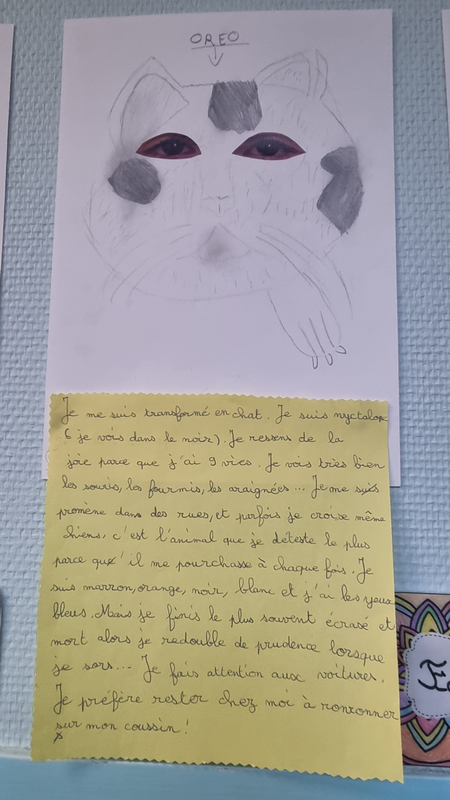 OREO
Je me suis transformé en chat. Je suis nyctalope
( je vois dans le noir). Je ressens de la
joie parce que j'ai 9 vies. Je vois très bien
les souris, les fourmis, les araignées... Je me suis
promène dans des rues, et parfois je croise même
chiens. c'est l'animal que je déteste le plus
parce qu'il me pourchasse à chaque fois. Je
suis marron, orange, noir, blanc et j'ai les yeux
bleus. Mais je finis le plus souvent écrasé et
mort alors je redouble de prudence lorsque
je sors... Je fais attention aux voitures.
Je préfère rester chez moi à ronronner
sur mon coussin!